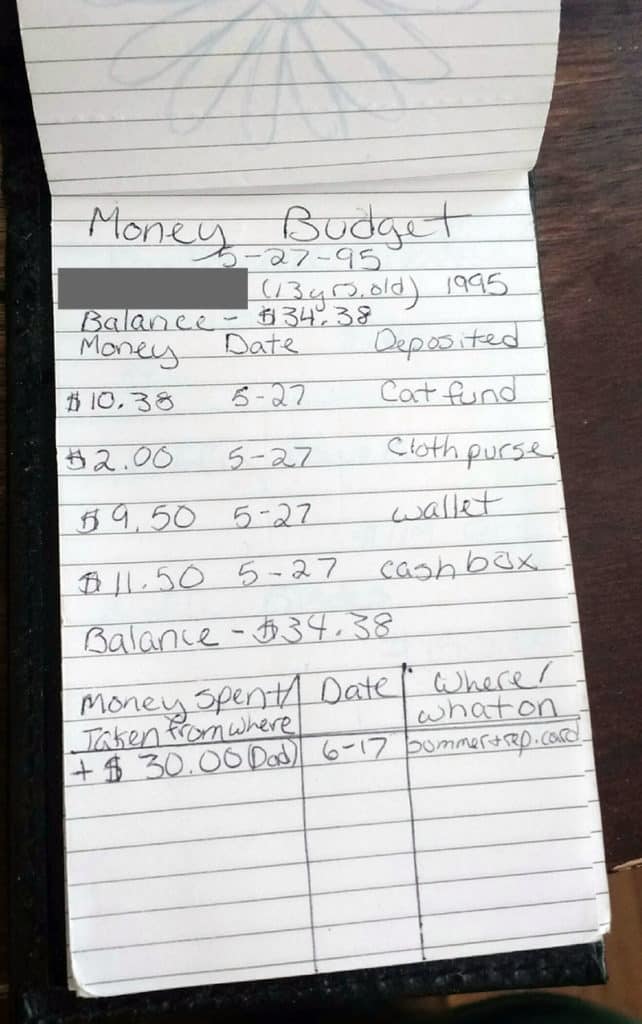 Money Budget
5-27-95
(13 yrs. old) 1995
Balance - $34.38
Money Date Deposited
$10.38 5-27 Cat fund
$2.00 5-27 Cloth purse
$9.50 5-27 wallet
$11.50 5-27 cash box
Balance - $34.38
Money spent/ Date Where/
Taken from where what on
+ $ 30.00 (Dad) 6-17 summer + rep. card